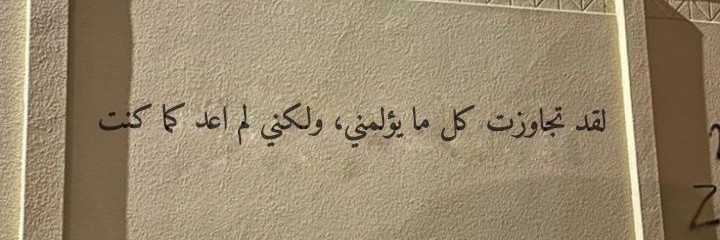 لقد تجاوزت كل ما يؤلمني، ولكني لم اعد كما كنت